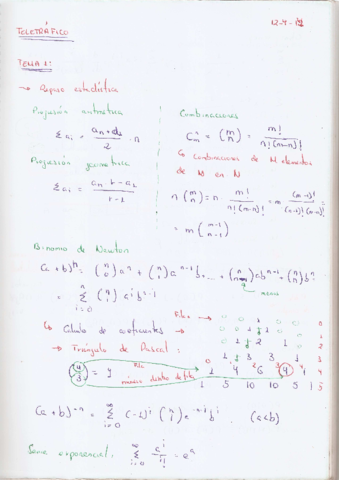 TELETRÁFICO
TEMA 1:
→ Repaso estadística
Progresión aritmética
Σ ai = (an + a1)/2 · n
Progresión geométrica
Σ ai = (an r - a1)/(r - 1)
Combinaciones
= (m n) = m!/(n!(m-n)!)
↳ combinaciones de M elementos
de N en N
n (m n) = n m!/(n!(m-n)!) = m (m-1)!/((n-1)!(m-n)!)
= m (m-1 n-1)
Binomio de Newton
(a + b)^n = (n 0) a^n + (n 1) a^(n-1) b + ... + (n n-1) a b^(n-1) + (n n) b^n
menos
= Σ i=0 n (n i) a^i b^(n-i)
Filas
↳ Cálculo de coeficientes
→ Triángulo de Pascal:
(4 3) = 4
fila
número dentro de fila
1 4 6 4 1
1 5 10 10 5 1
(a + b)^-n = Σ i=0 ∞ (-1)^i (n i) (a<b)
Serie exponencial: Σ i=0 ∞ a^i/i! = e^a